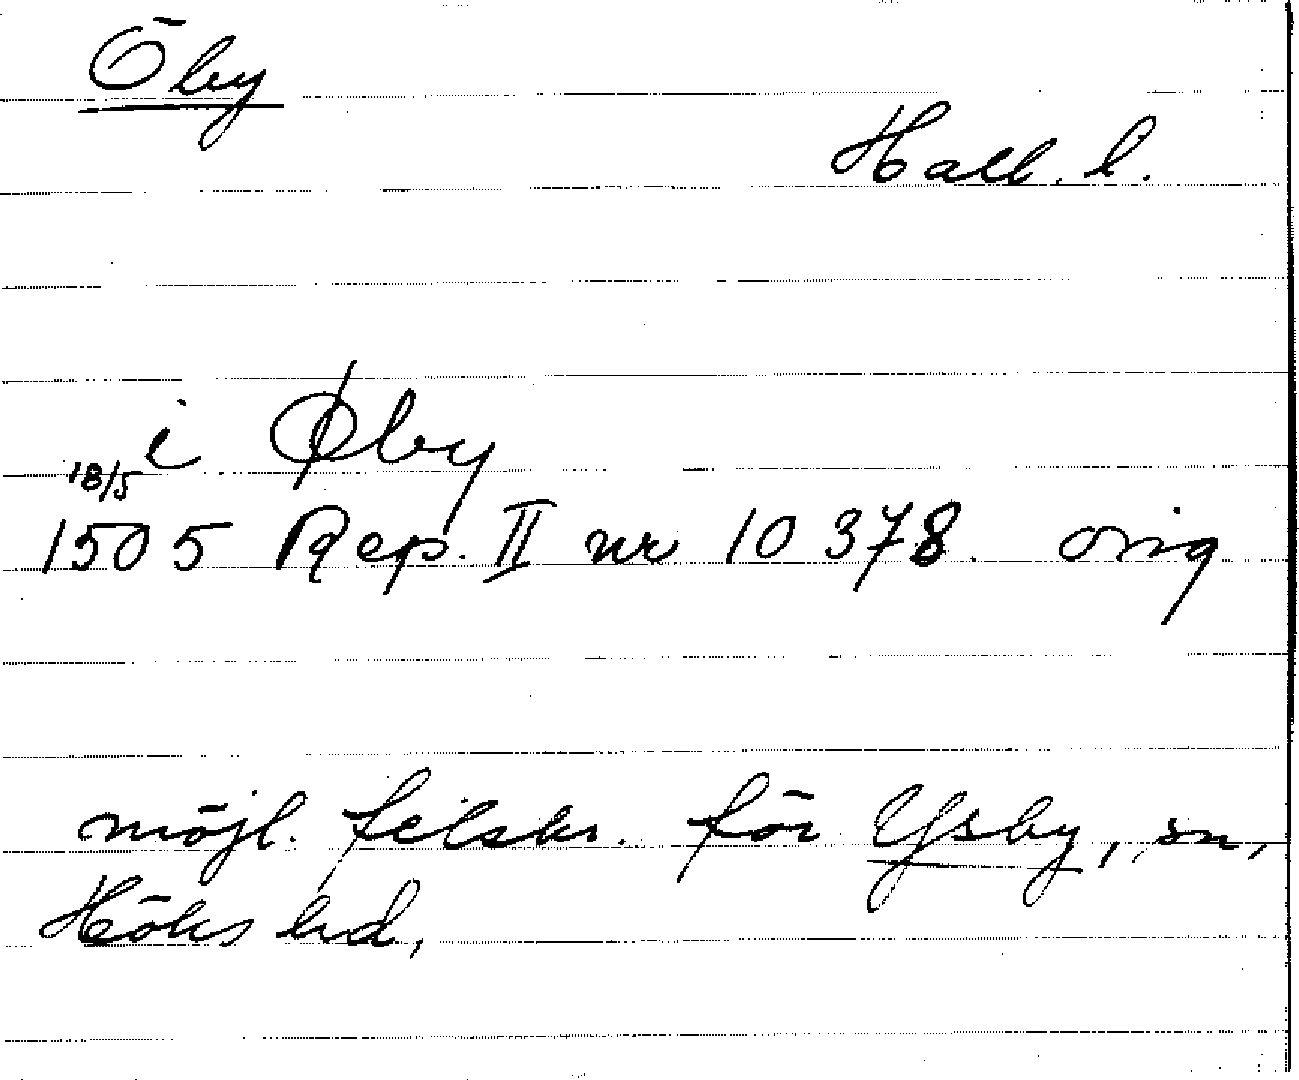 Öby
Hall. l.
i Øby
18/5
1505 Rep. II nr 10378. orig
möjl. felskr. för Ysby, sn,
Höks hd,